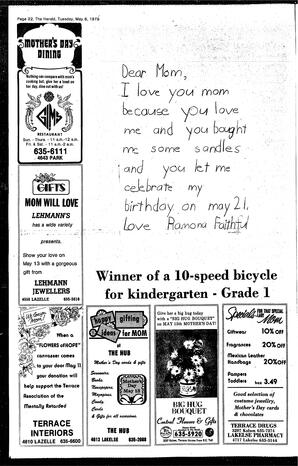 Page 22, The Herald, Tuesday, May 8, 1979
MOTHER'S DAY
DINING
Nothing can compare with mom's
cooking but, give her a treat on
her day, dine out with us!
RESTAURANT
Sun. - Thurs. - 11 a.m.-12 a.m.
Fri. & Sat. - 11 a.m.-2 a.m.
635-6111
4643 PARK
Dear Mom,
I love you mom
because you love
me and you bought
me some sandles
and you let me
celebrate my
birthday on may 21.
Love Ramona Faithful
GIFTS
MOM WILL LOVE
LEHMANN'S
has a wide variety
presents.
Show your love on
May 13 with a gorgeous
gift from
LEHMANN
JEWELLERS
4555 LAZELLE
Winner of a 10-speed bicycle
for kindergarten - Grade 1
When a
"FLOWERS of HOPE"
canvasser comes
to your door May 11
your donation will
help support the Terrace
Association of the
Mentally Retarded
TERRACE
INTERIORS
4610 LAZELLE 635-6600
happy gifting
ideas for MOM
at
THE HUB
Mother's Day cards & gifts
Souvenirs
Books
Newspapers
Magazines
Candy
Cards
& Gifts for all occasions.
Mother's
Day
May 13
THE HUB
4613 LAKELSE
Give her a big hug today
with a "BIG HUG BOUQUET"
ON MAY 13th MOTHER'S DAY!
BIG HUG
BOUQUET
Central Flowers & Gifts
635-5920
Specials FOR THAT SPECIAL LADY
Mom
Giftware 10% OFF
Fragrances 20% OFF
Mexican Leather
Handbags 20% OFF
Pampers
Toddlers box 3.49
Good selection of
costume jewellry,
Mother's Day cards
& chocolates
TERRACE DRUGS
3207 Kalum 635-7274
LAKELSE PHARMACY
4717 Lakelse